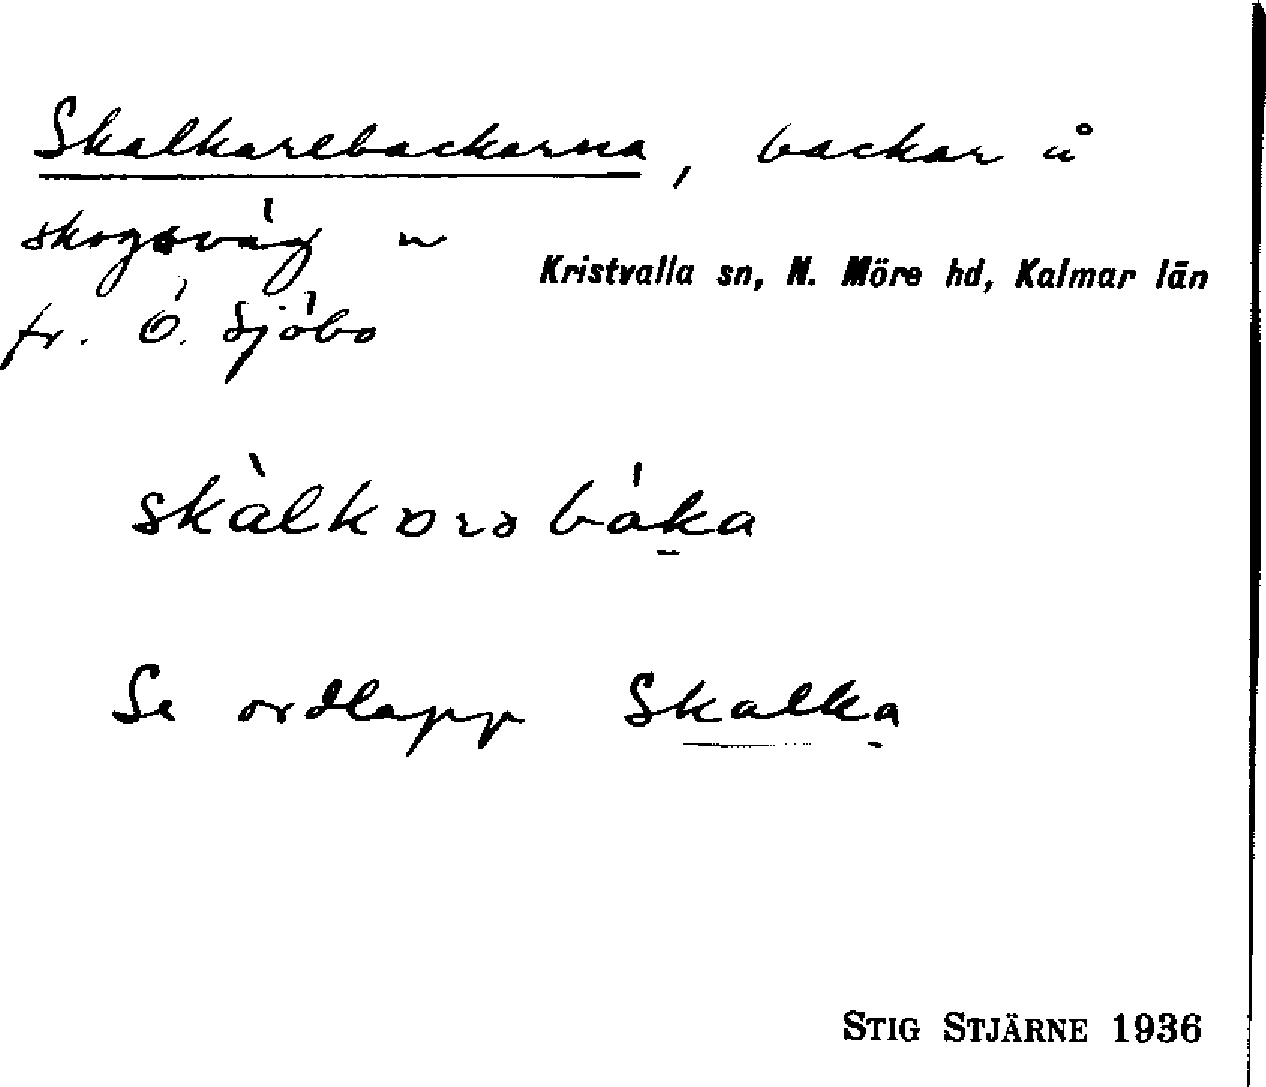 Skalkarebackarna, backar å
skogsväg n
fr. Ö. Sjöbo
Kristvalla sn, N. Möre hd, Kalmar län
skàlkɒrə báka
Se ordlapp Skalka
STIG STJÄRNE 1936